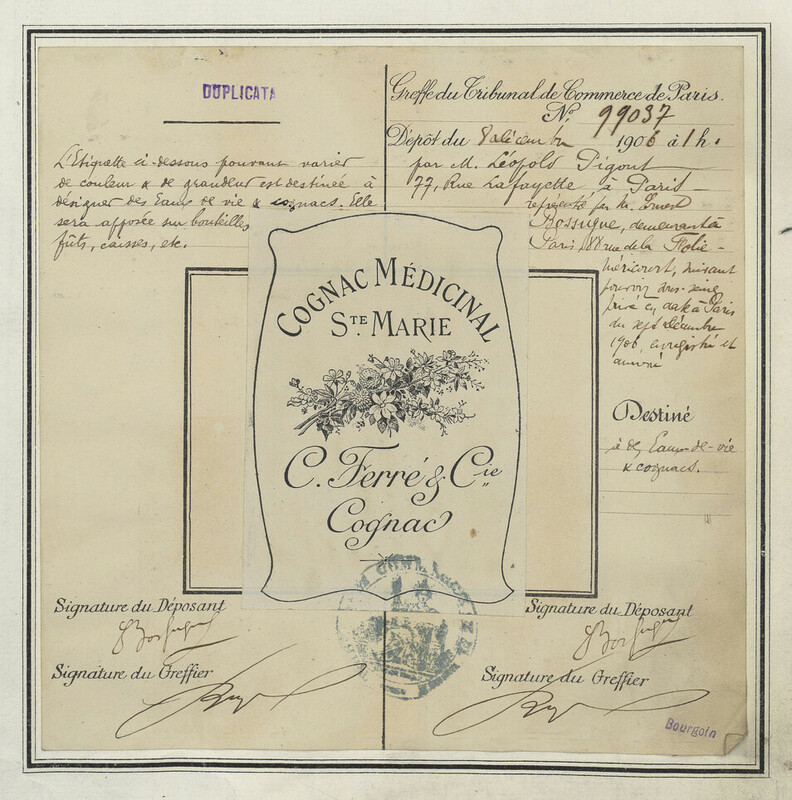 DUPLICATA
L'Etiquette ci-dessous pouvant varier
de couleur & de grandeur est destinée à
désigner des Eaux de vie & cognacs. Elle
sera apposée sur bouteilles
fûts, caisses, etc.
Greffe du Tribunal de Commerce de Paris.
No. 99037
Dépôt du 8 décembre 1906 à 1 h.
par M. Léopold Pigout
77, Rue Lafayette à Paris
représenté par M. Ernest
Bossuque, demeurant à
Paris, 88 rue de la Folie-
Méricourt, suivant
pouvoir sous-seing
privé en date à Paris
du sept décembre
1906, enregistré et
annexé
Destiné
à des Eaux-de-vie
& cognacs.
COGNAC MÉDICINAL
STE MARIE
C. Ferré & Cie
Cognac
Signature du Déposant
Signature du Greffier
Signature du Déposant
Signature du Greffier
Bourgoin